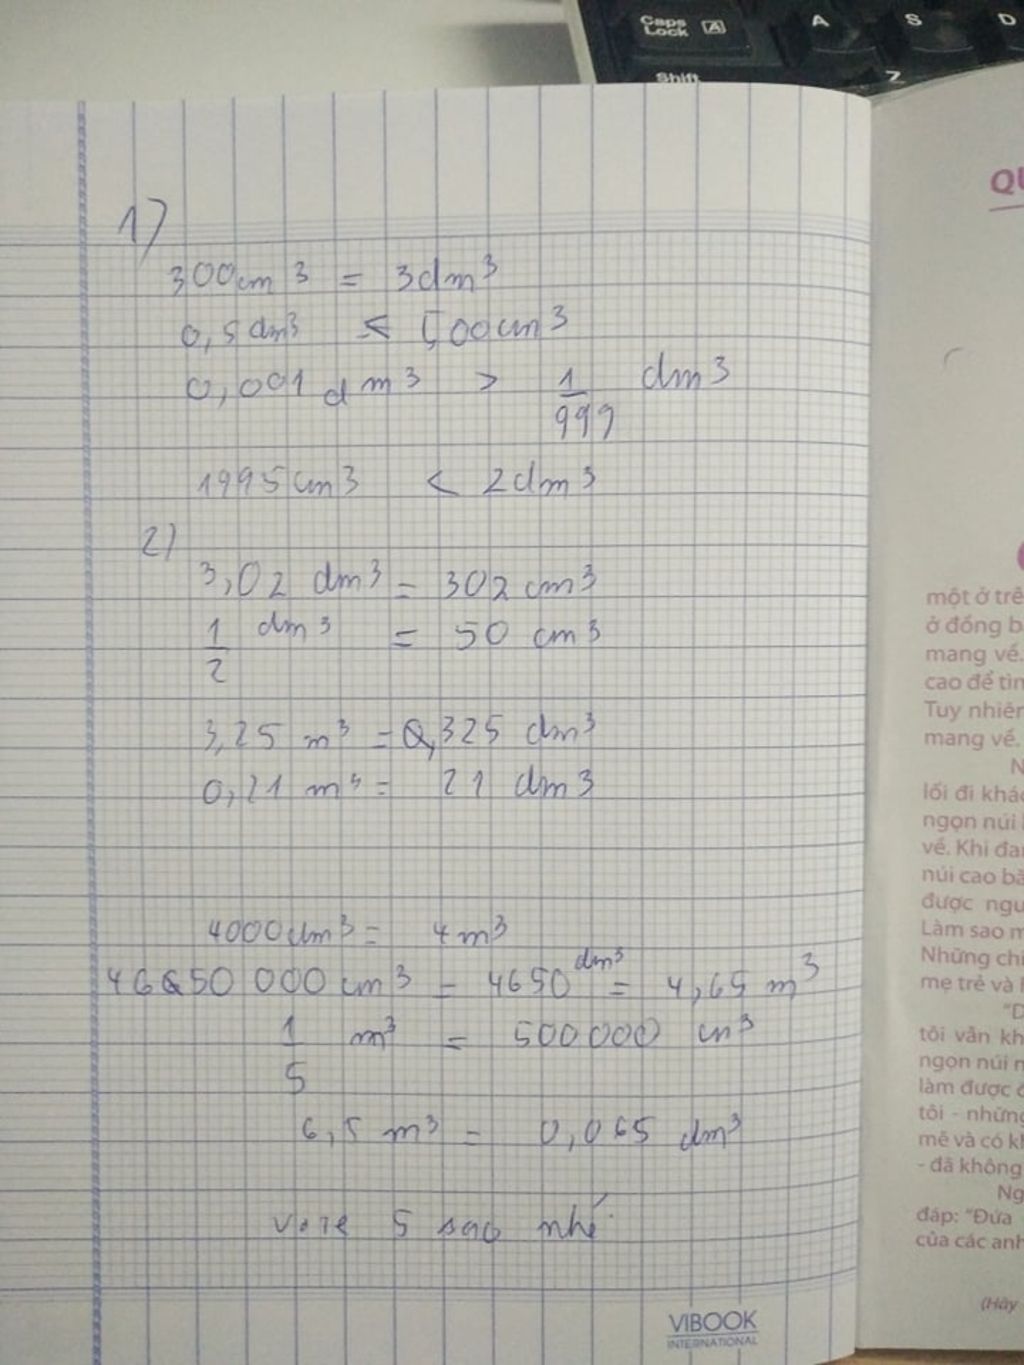 Caps
Lock A
A
S
D
Shift
Z
QU
1)
300cm3 = 3dm3
0,5dm3 < 500cm3
0,001dm3 > 1/999 dm3
1995cm3 < 2dm3
2)
3,02 dm3 = 302 cm3
1/2 dm3 = 50 cm3
3,25 m3 = 0,325 dm3
0,21 m3 = 21 dm3
4000dm3 = 4m3
4650 000 cm3 = 4650 dm3 = 4,65 m3
1/5 m3 = 500000 cm3
6,5 m3 = 0,065 dm3
vote 5 sao nhé
VIBOOK
INTERNATIONAL
một ở trê
ở đồng b
mang về.
cao để tìn
Tuy nhiên
mang về.
N
lối đi khá
ngọn núi
về. Khi đa
núi cao bà
được ngu
Làm sao m
Những chi
mẹ trẻ và
"D
tôi vẫn kh
ngọn núi n
làm được
tôi - những
mẽ và có kh
- đã không
Ng
đáp: "Đứa
của các anh
(Hãy